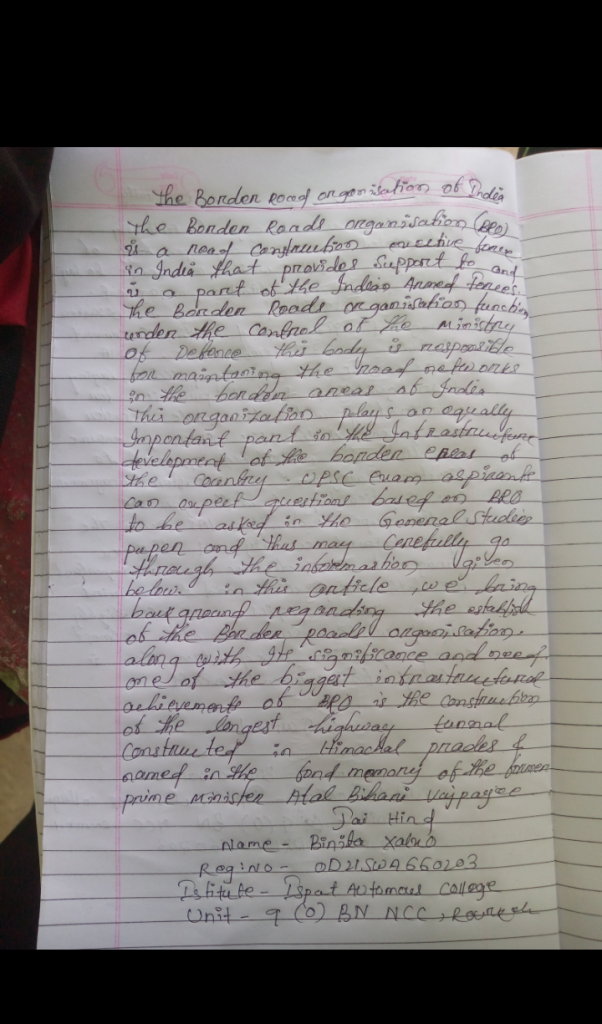 The Border Road organisation of India
The Border Roads organisation (BRO)
is a road construction exective force
in India that provides support to and
is a part of the Indian Armed Forces.
The Border Roads organisation function
under the control of the ministry
of Defence this body is responsible
for maintaning the road networks
in the border areas of India
This organization plays an equally
Important part in the Infrastructure
development of the border ereas of
the country. UPSC exam aspirants
can expect questions based on BRO
to be asked in the General Studies
paper and thus may Carefully go
through the information given
below. in this article, we bring
background regarding the establish
of the Border Roads organisation.
along with Its significance and need.
one of the biggest infrastructural
achievements of BRO is the construction
of the longest highway tunnal
constructed in Himachal prades &
named in the fond memory of the former
prime Minister Atal Bihari Vajpayee
Jai Hind
Name - Binita Xalxo
Reg: No - OD21SWA660203
Istitute - Ispat Automous College
Unit - 9 (O) BN NCC,